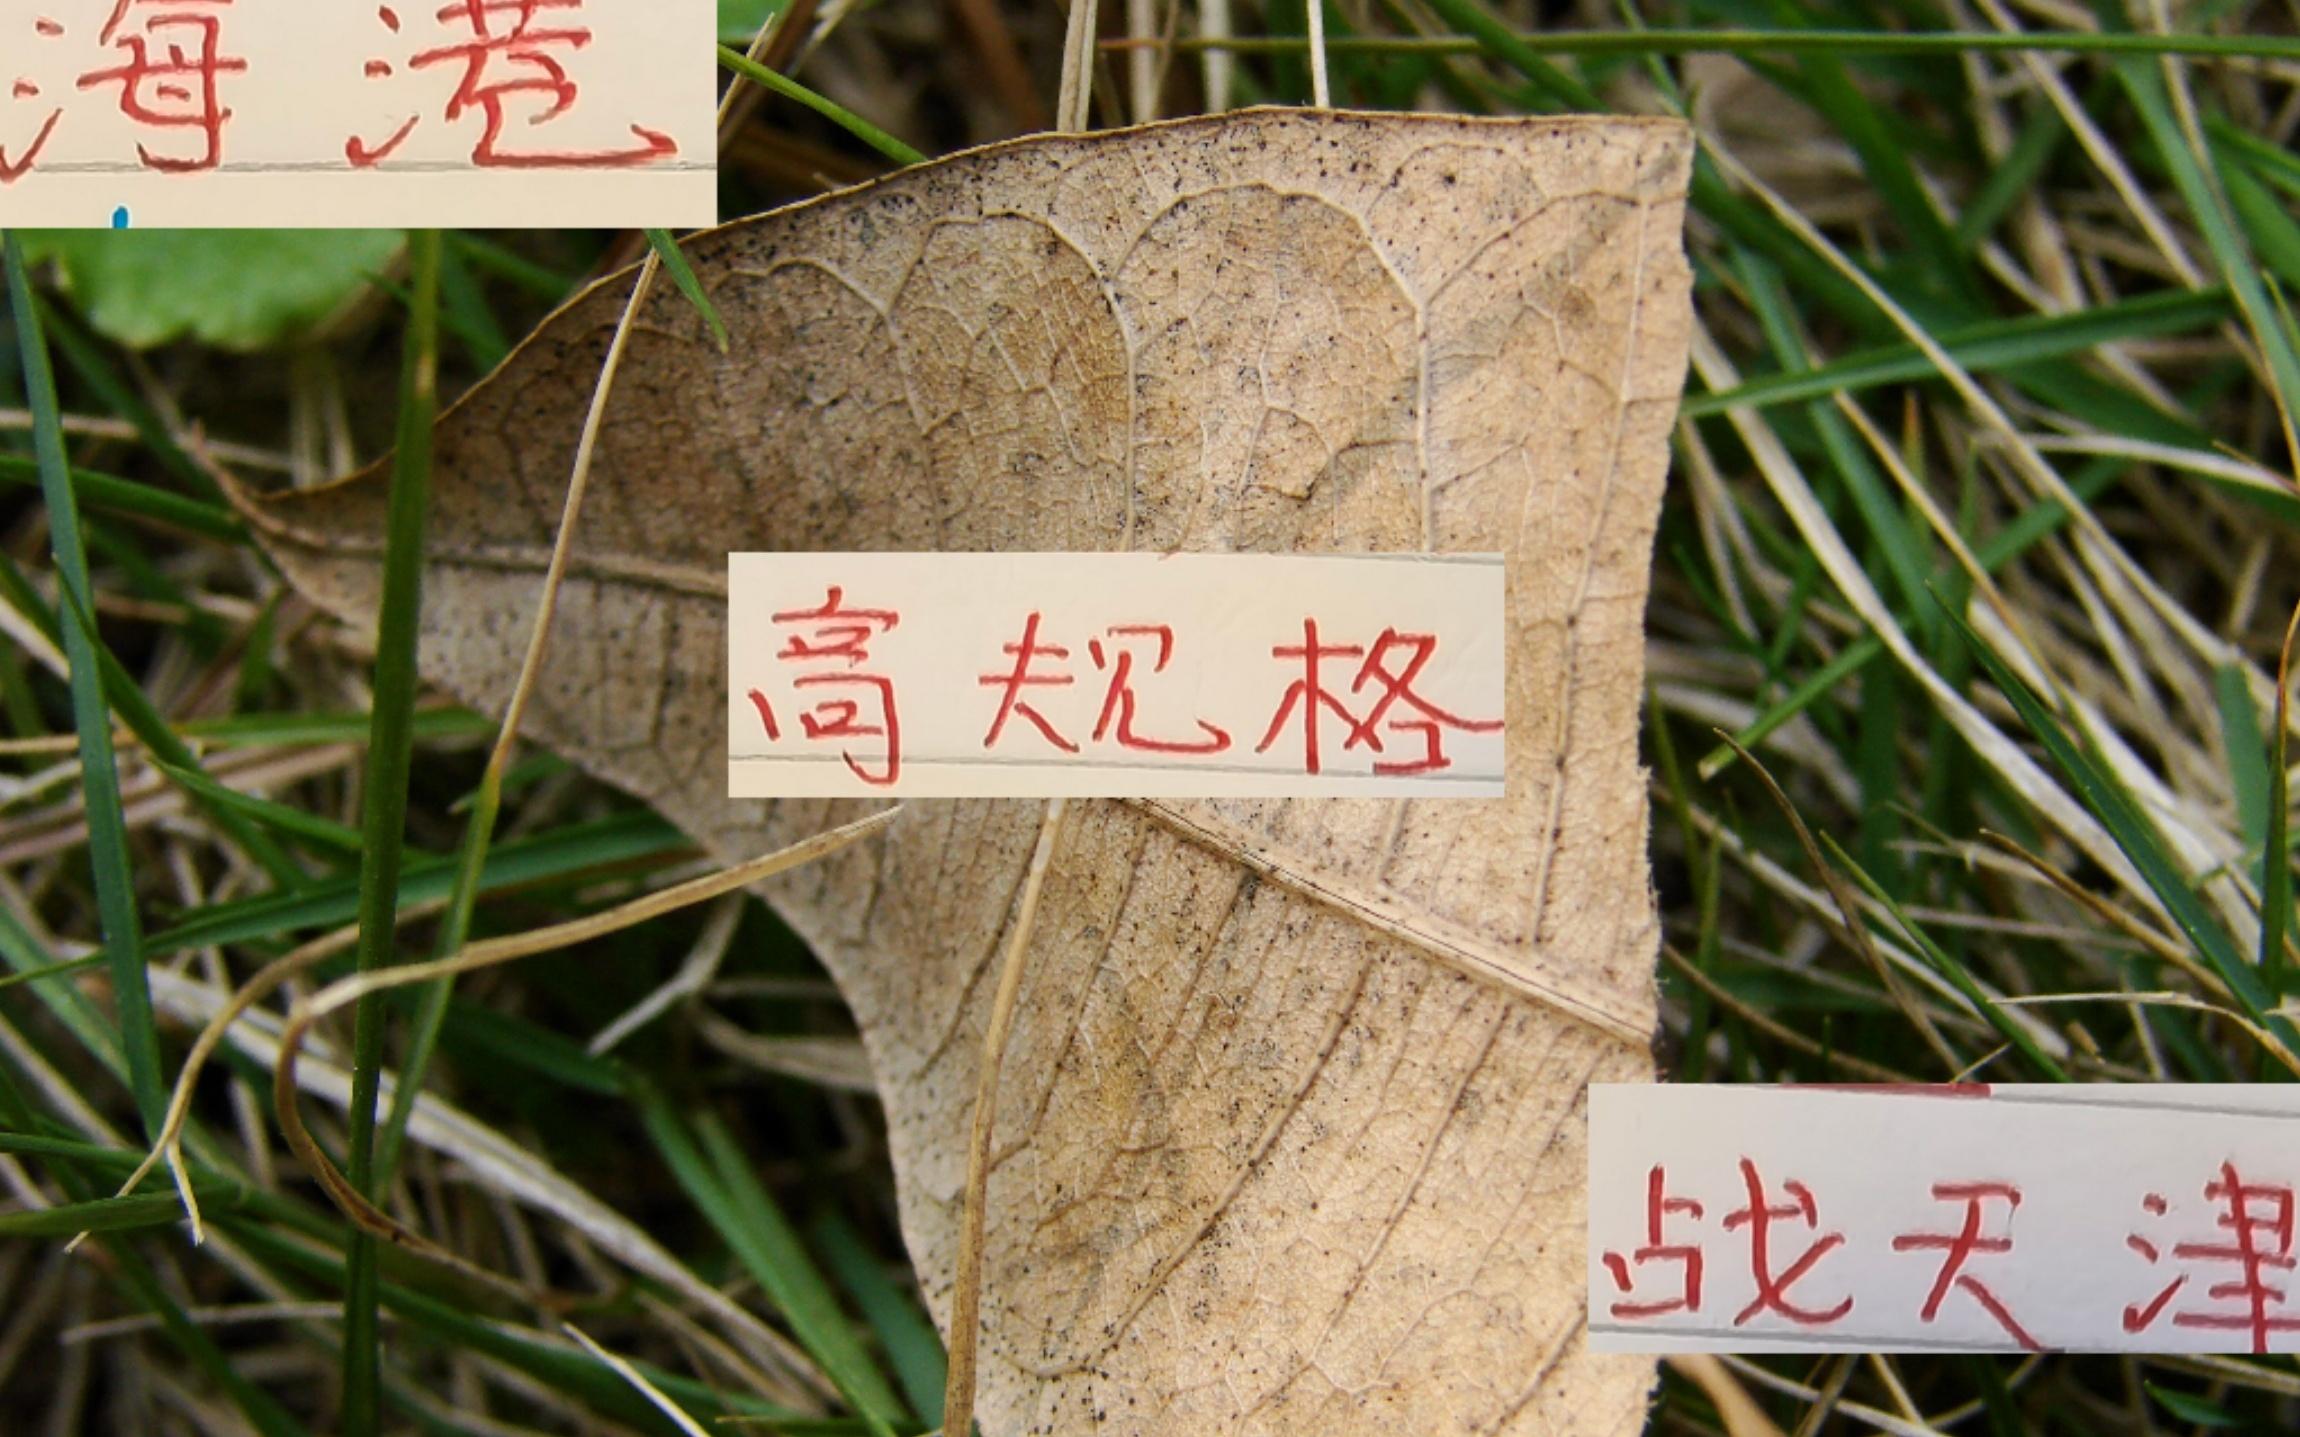 海港
高规格
战天津